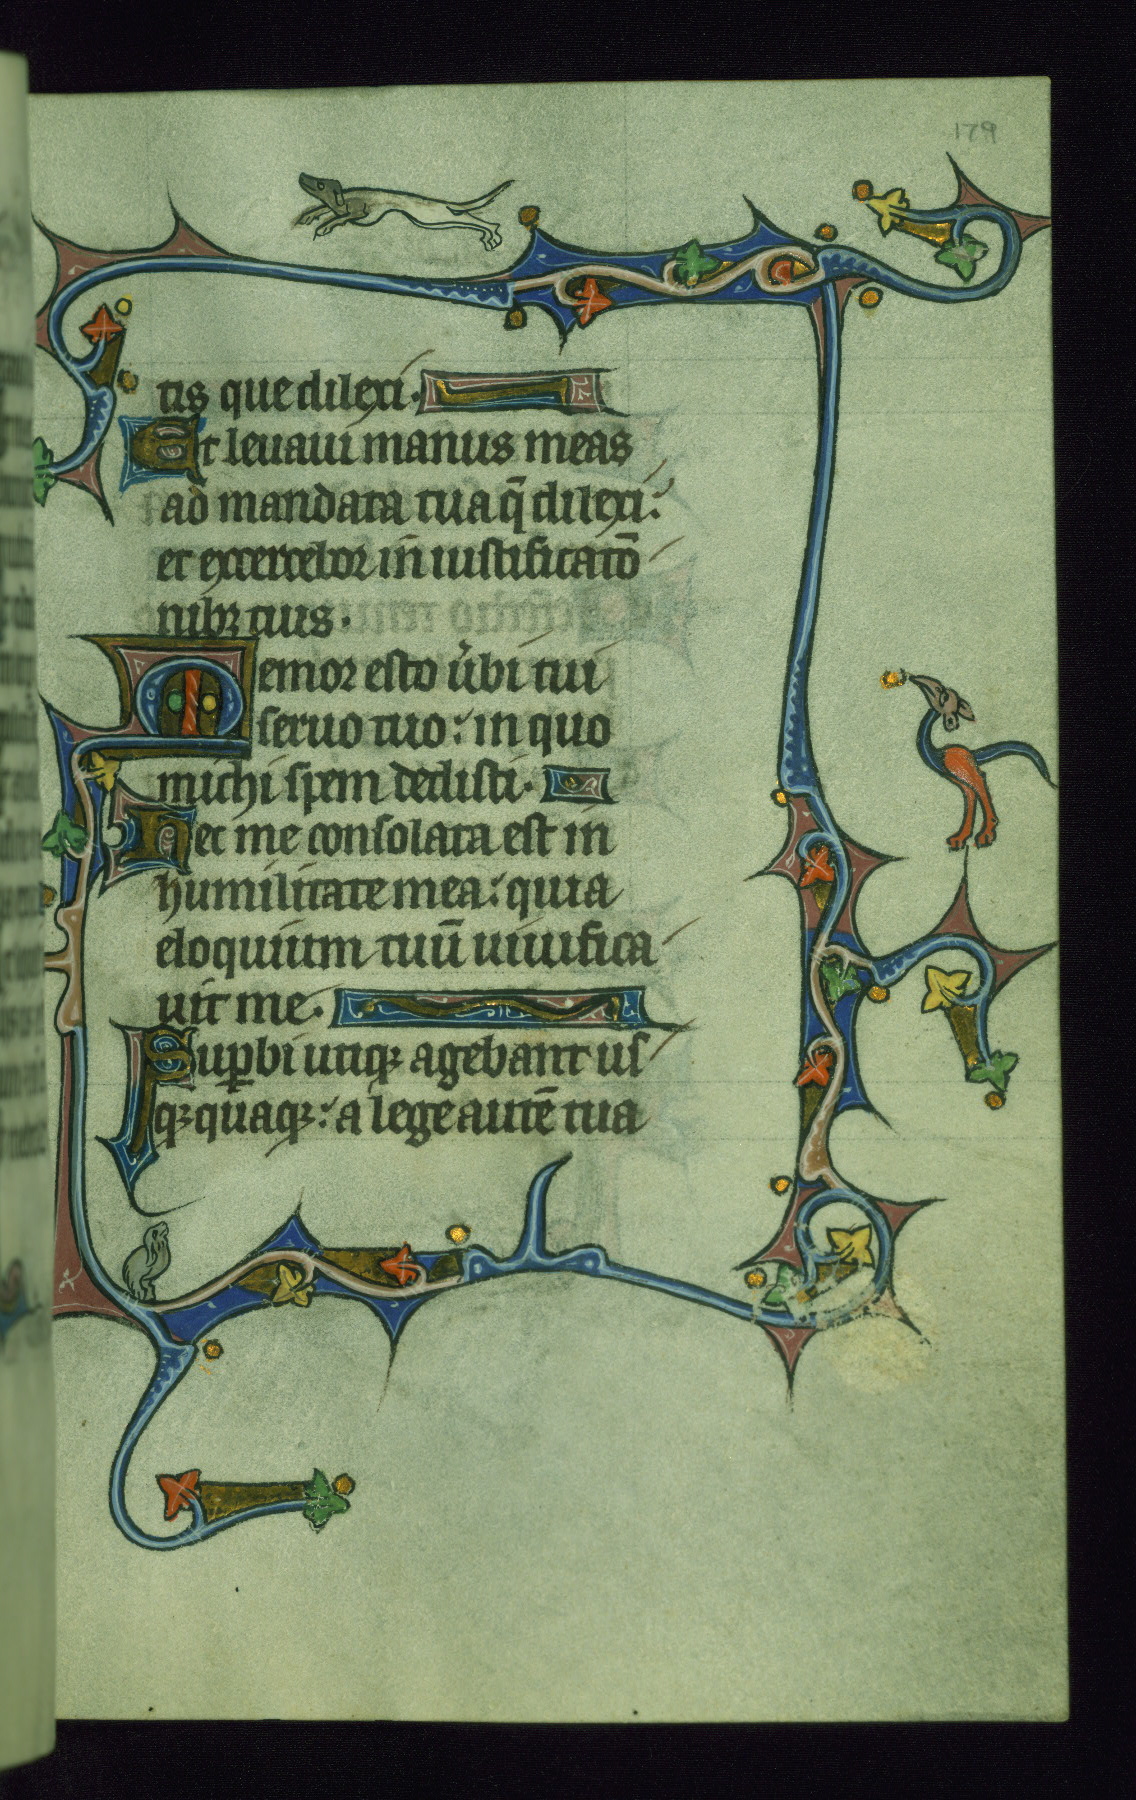 179
tis que dilexi.
Et leuaui manus meas
ad mandata tua q̄ dilexi:
et excercebor in iustificatō
nibꝫ tuis.
Memor esto ůbi tui
seruo tuo: in quo
michi spem dedisti.
Hec me consolata est in
humilitate mea: quia
eloquium tuū uiuifica
uit me.
Suꝑbi utiqꝫ agebant us
qꝫ quaqꝫ: a lege autē tua